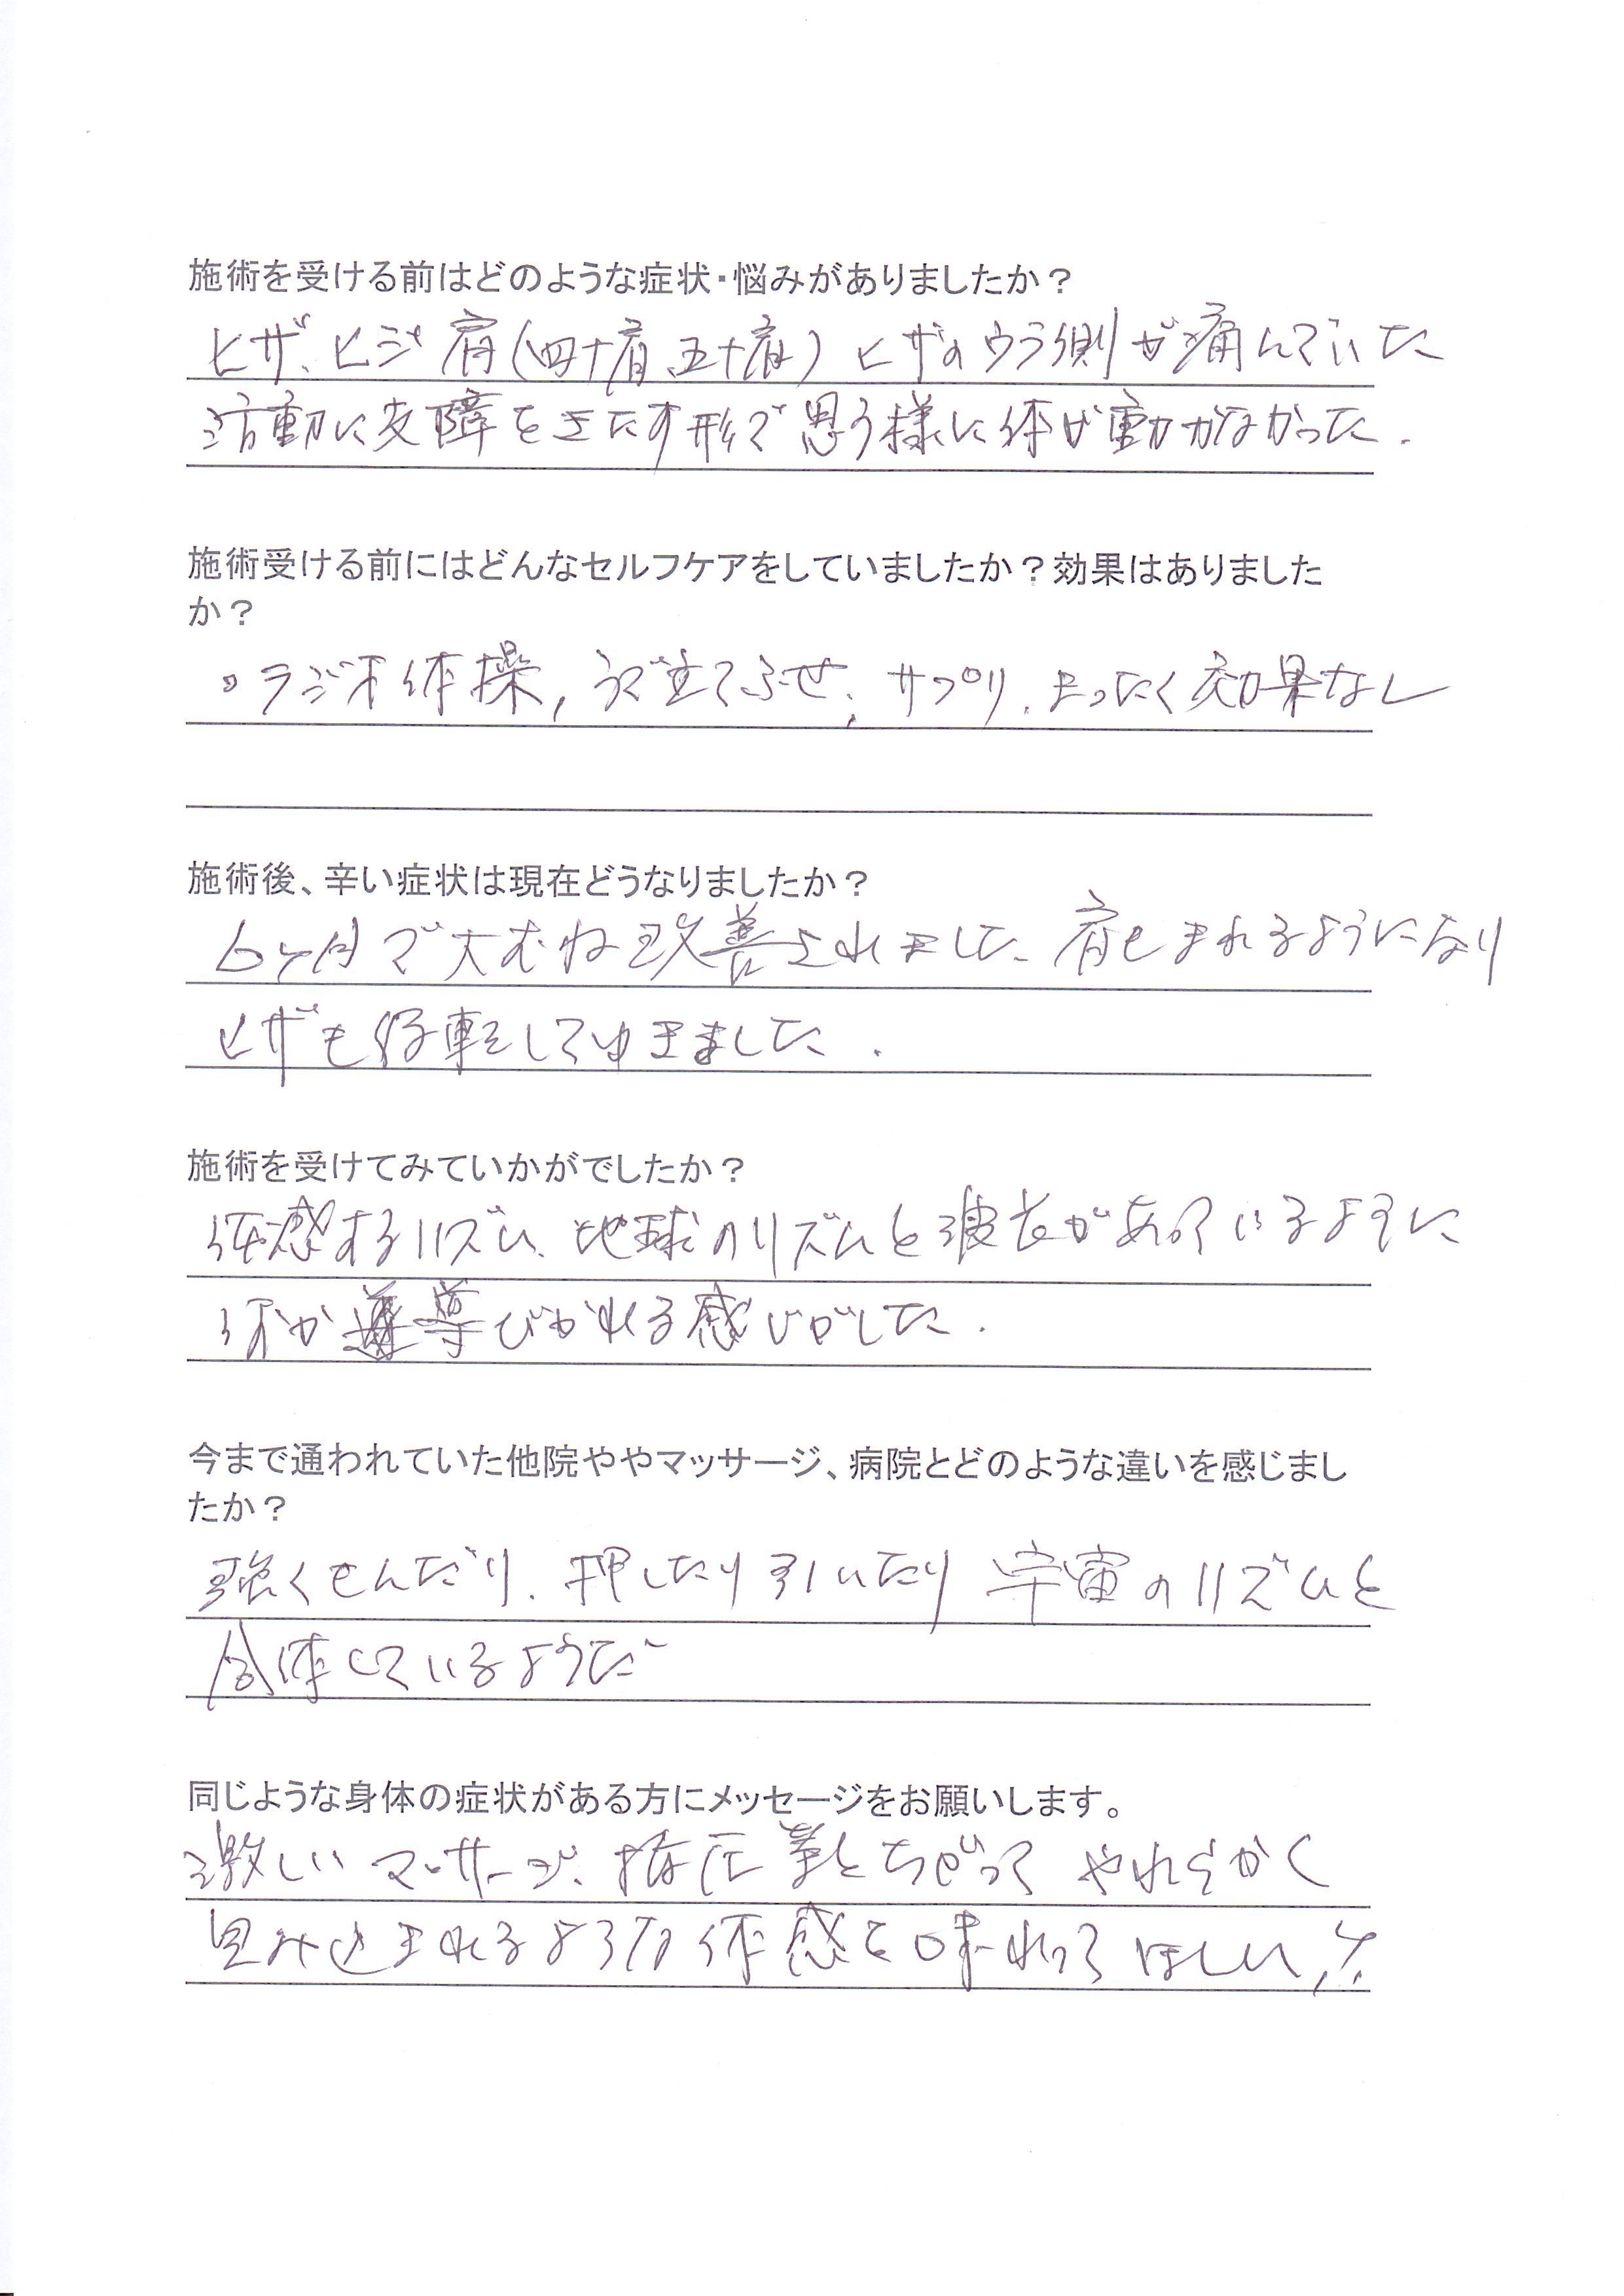 施術を受ける前はどのような症状・悩みがありましたか？
ヒザ、ヒジ 肩(四十肩、五十肩) ヒザのウラ側が痛んでいた
活動に支障をきたす形で思う様に体が動かなかった.
施術受ける前にはどんなセルフケアをしていましたか？効果はありました
か？
ラジオ体操, うで立てふせ, サプリ、まったく効果なし
施術後、辛い症状は現在どうなりましたか？
6ヶ月で大むね改善されました、肩もまわれるようになり
ヒザも好転してゆきました.
施術を受けてみていかがでしたか？
体感するリズム、地球のリズムと波長があっているように
体が導びかれる感じがした.
今まで通われていた他院ややマッサージ、病院とどのような違いを感じまし
たか？
強くもんだり、押したり引いたり 宇宙のリズムと
合体しているようだ
同じような身体の症状がある方にメッセージをお願いします。
激しいマッサージ、指圧等とちがって やわらかく
包み込まれるような体感を味わってほしい